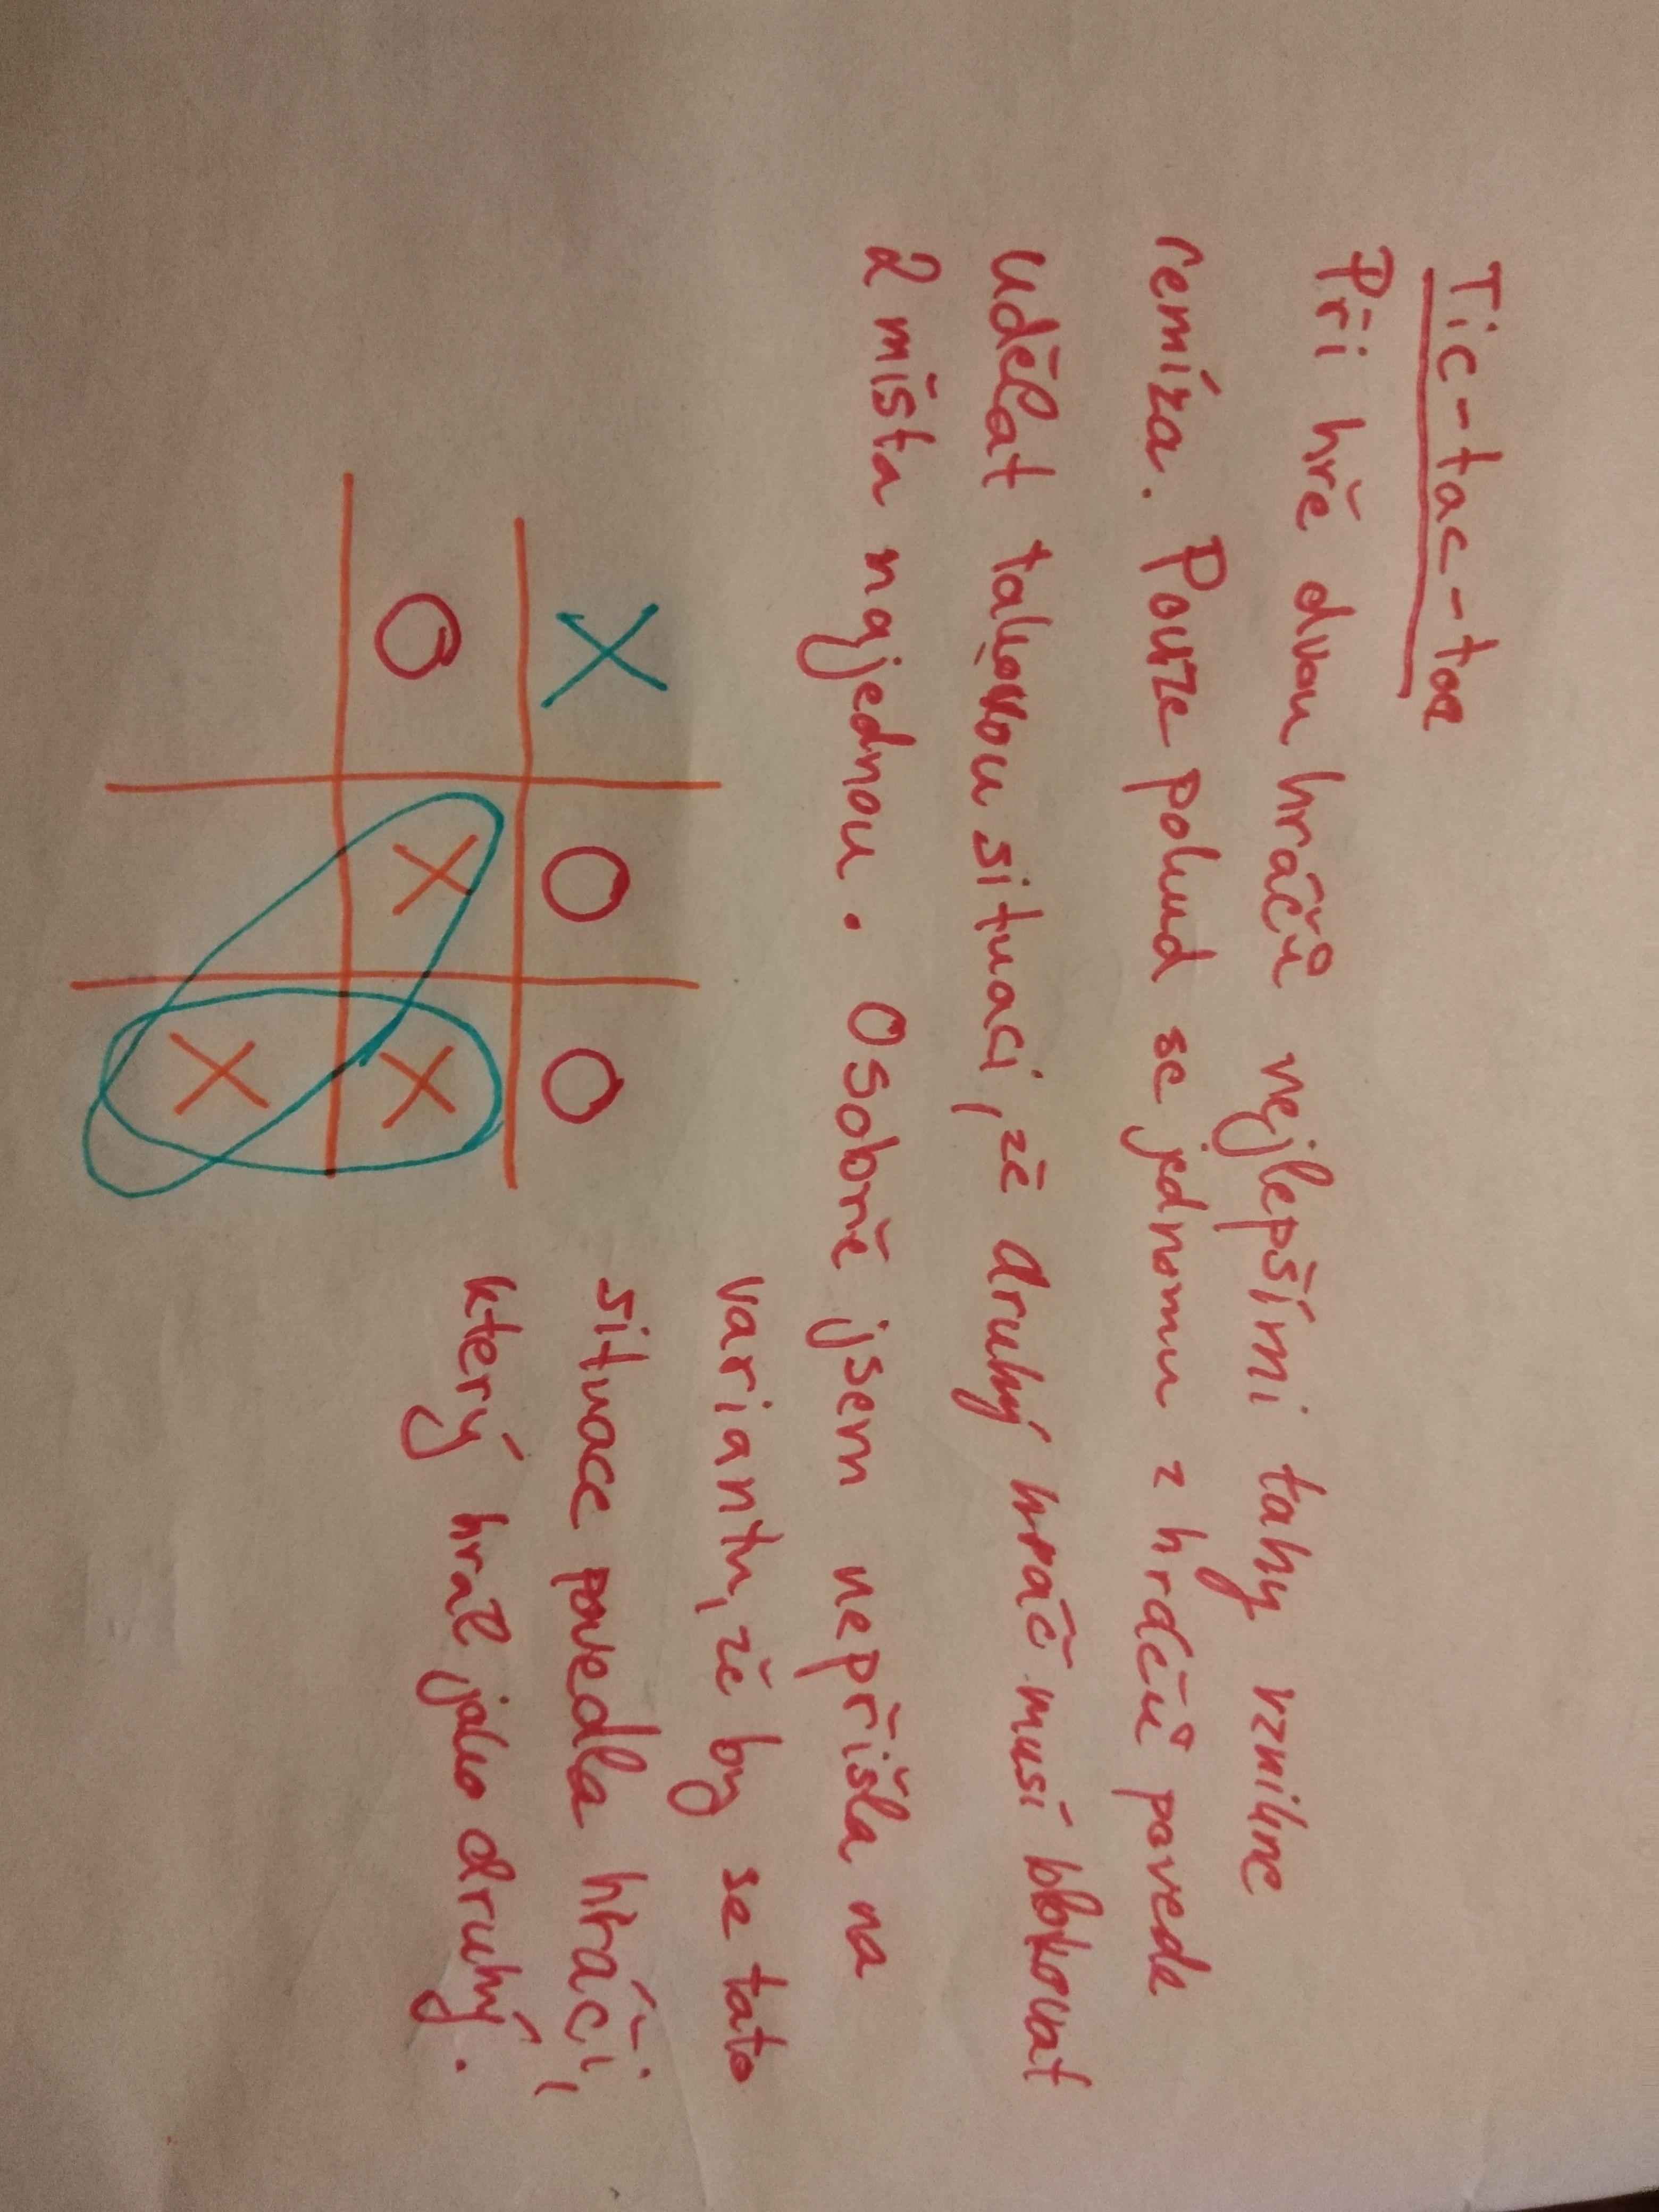 Tic-tac-toe
Při hře dvou hráčů nejlepšími tahy vznikne
remíza. Pouze pokud se jednomu z hráčů povede
udělat takovou situaci, že druhý hráč musí blokovat
2 místa najednou. Osobně jsem nepřišla na
variantu, že by se tato
situace povedla hráči,
který hrál jako druhý.
X O O
O X X
X